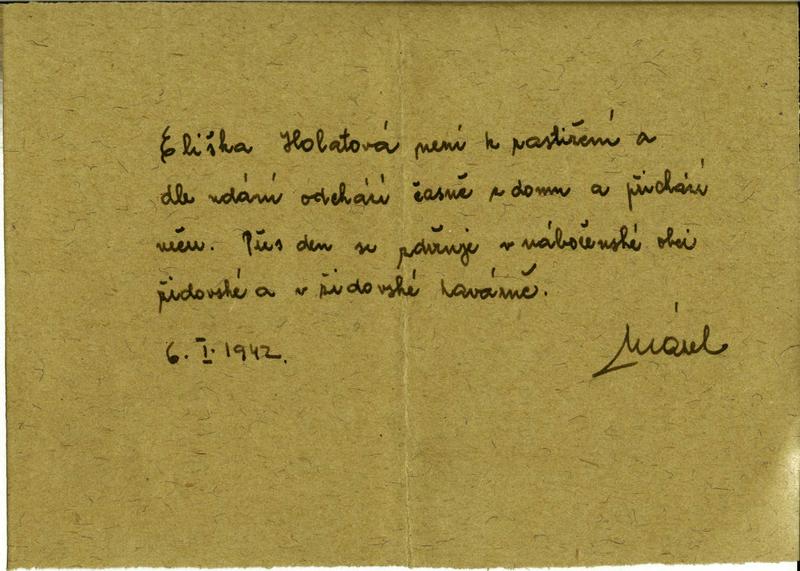 Eliška Holatová není k zastižení a
dle udání odchází časně z domu a přichází
večer. Přes den se zdržuje v náboženské obci
židovské a v židovské kavárně.
6. I. 1942.